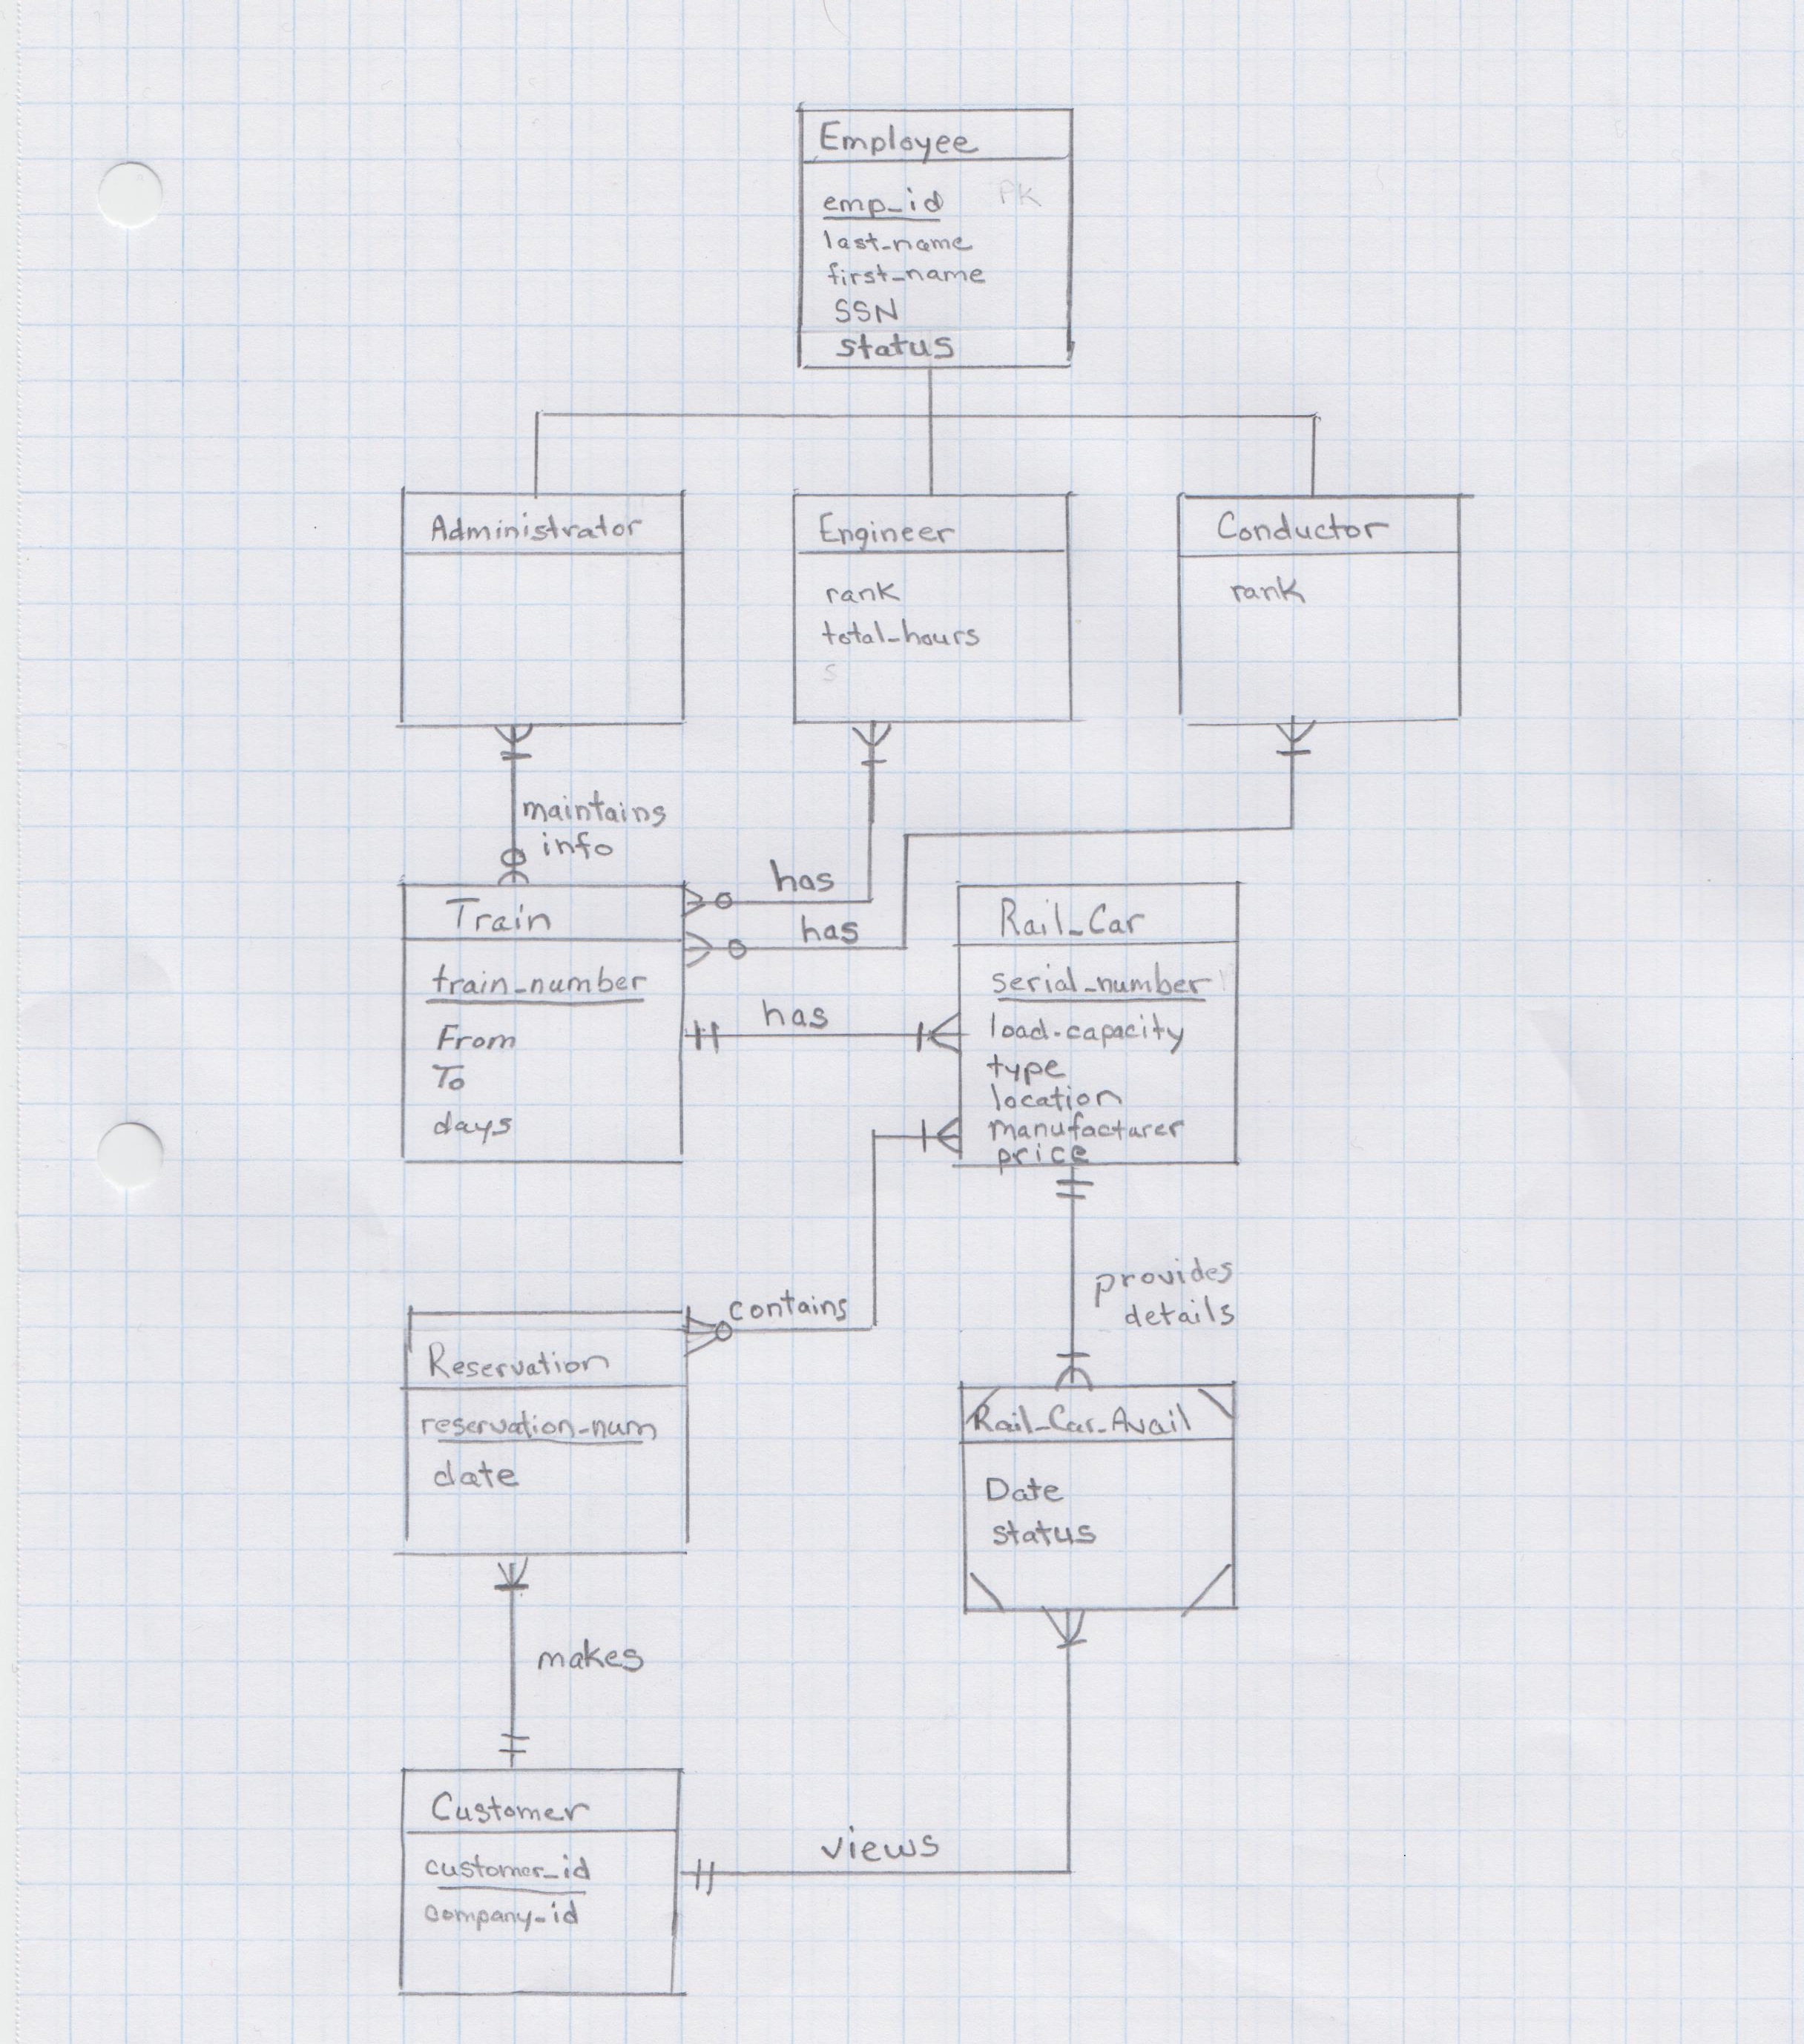 Employee
emp_id PK
last_name
first_name
SSN
status
Administrator
Engineer
rank
total_hours
s
Conductor
rank
maintains
info
has
has
Train
train_number
From
To
days
has
Rail_Car
serial_number
load-capacity
type
location
manufacturer
price
contains
provides
details
Reservation
reservation_num
date
Rail_Car_Avail
Date
status
makes
Customer
customer_id
company_id
views